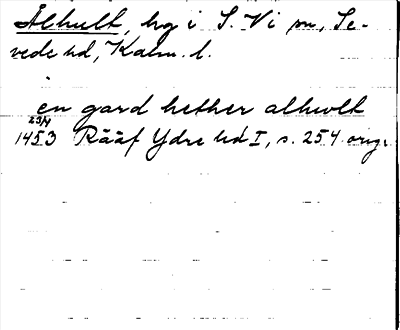 Älhult, hg i S. Vi sn, Se-
vede hd, Kalm. l.
en gard hether alhwlt
23/4
1453 Rääf Ydre hd I, s. 254 orig.